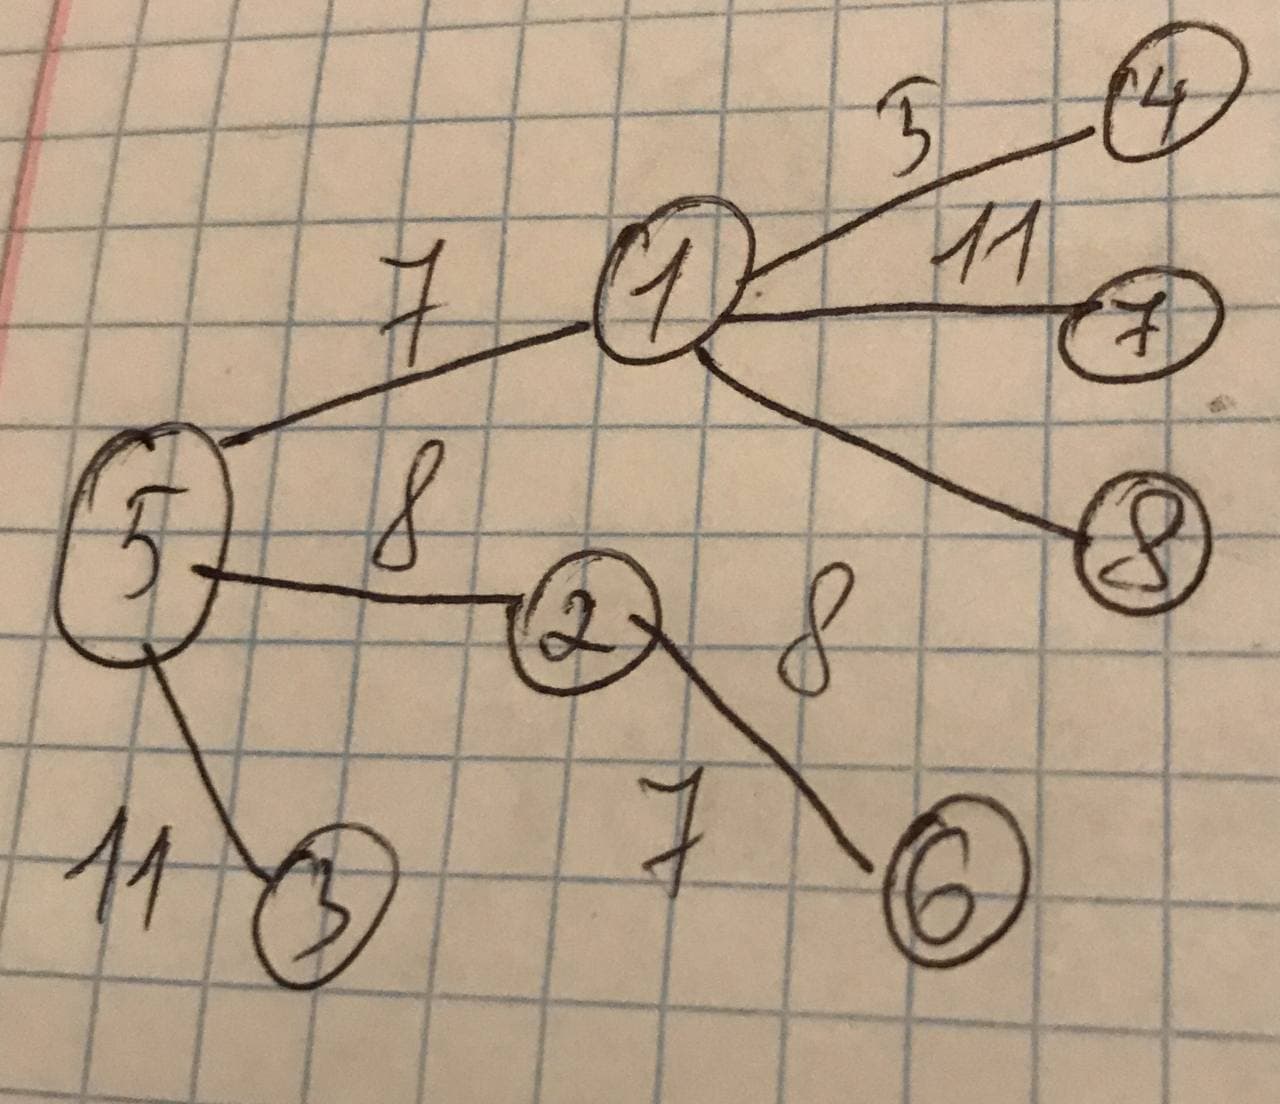 5
4
11
7
1
7
8
5
8
2
8
7
11
3
6